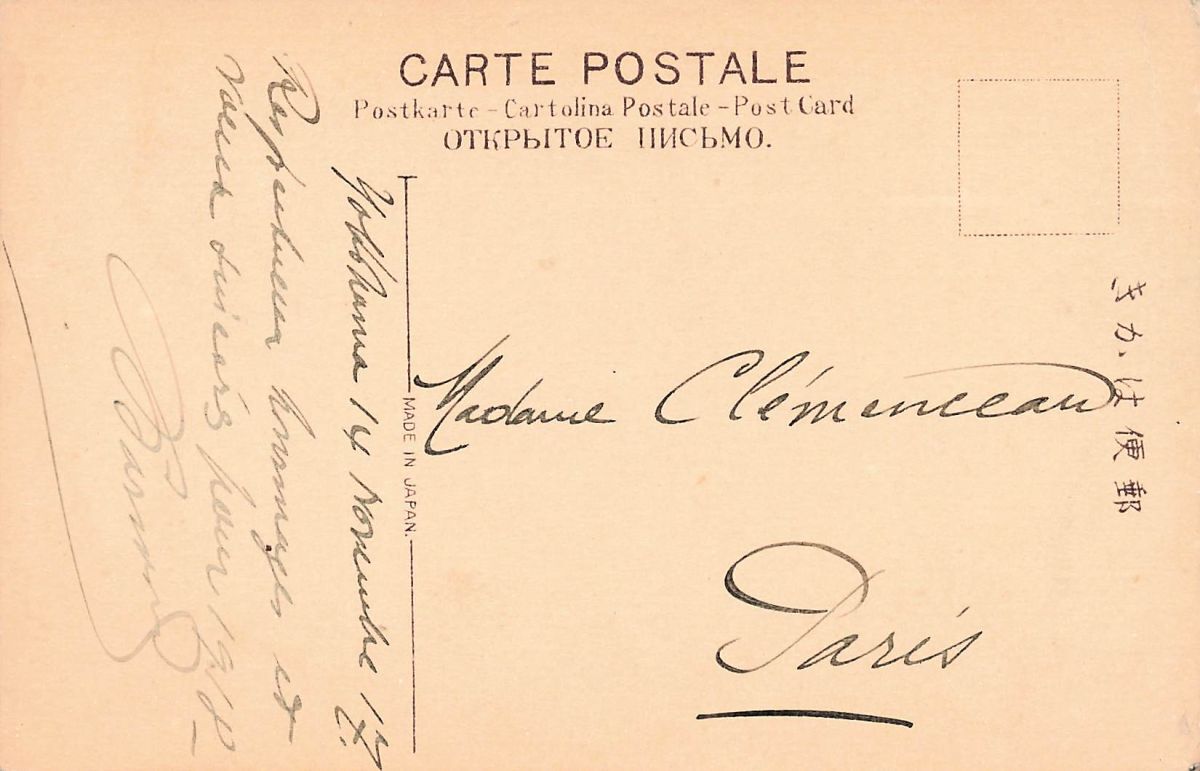 CARTE POSTALE
Postkarte - Cartolina Postale - Post Card
ОТКРЫТОЕ ПИСЬМО.
郵便はかき
MADE IN JAPAN.
Yokohama 14 Novembre 17.
Respectueux hommages et
voeux sincères pour 1918 -
Madame Clémenceau
Paris